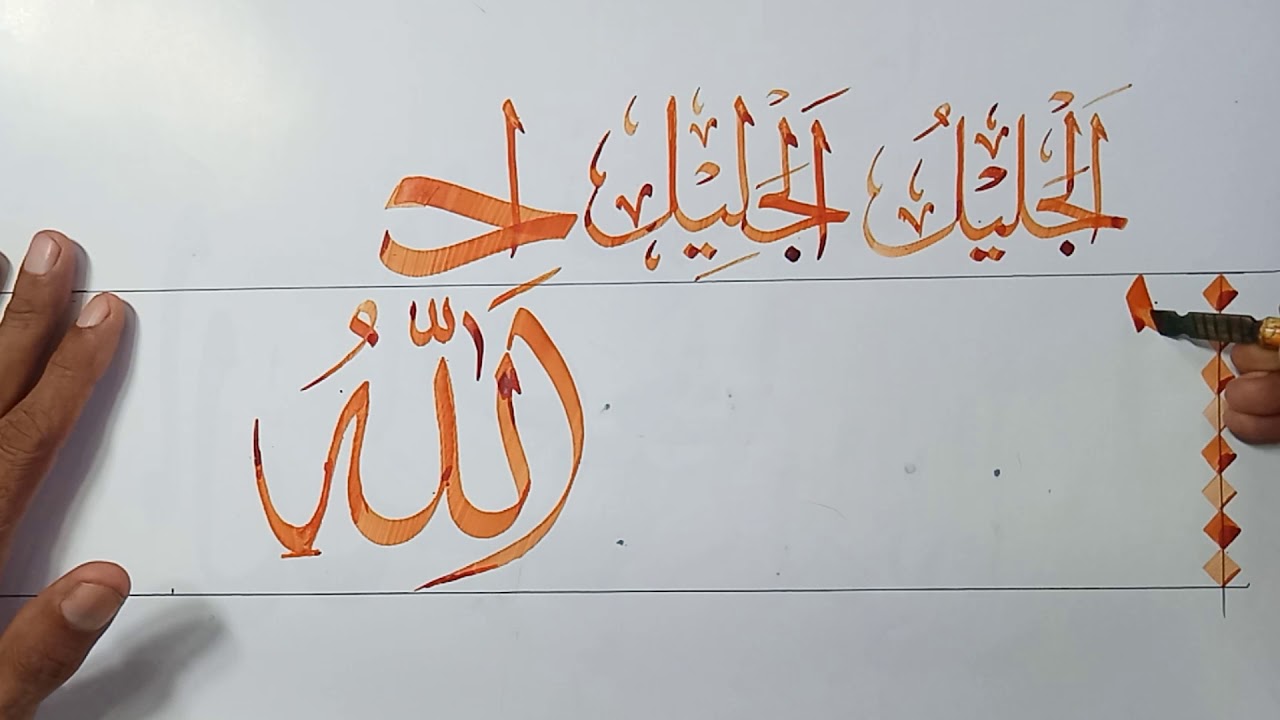 اَلْجليْلُ اَلْجَلِيْل
اَللّٰهُ